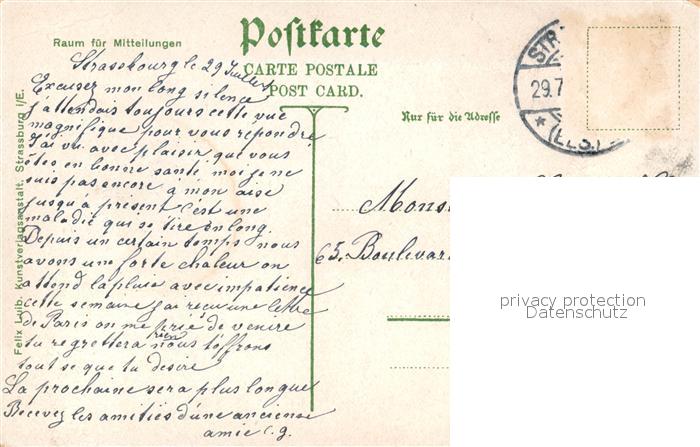 Raum für Mitteilungen
Postkarte
CARTE POSTALE
POST CARD.
Nur für die Adresse
Felix Luib, Kunstverlagsanstalt, Strassburg i/E.
STR
29.7
* (ELS.)
Strassbourg le 29 Juillet
Excusez mon long silence
j'attendais toujours cette vue
magnifique pour vous repondre
J'ai vu avec plaisir que vous
êtes en bonne santé moi je ne
suis pas encore à mon aise
jusqu'à présent c'est une
maladie qui se tire en long.
Depuis un certain temps nous
avons une forte chaleur on
attend la pluie avec impatience
cette semaine j'ai reçu une lettre
de Paris on me prie de venire
tu regrettera rien nous t'offrons
tout se que tu desire
La prochaine sera plus longue
Recevez les amitiés d'une ancienne
amie C.G.
Mons
65. Boulevar
privacy protection
Datenschutz